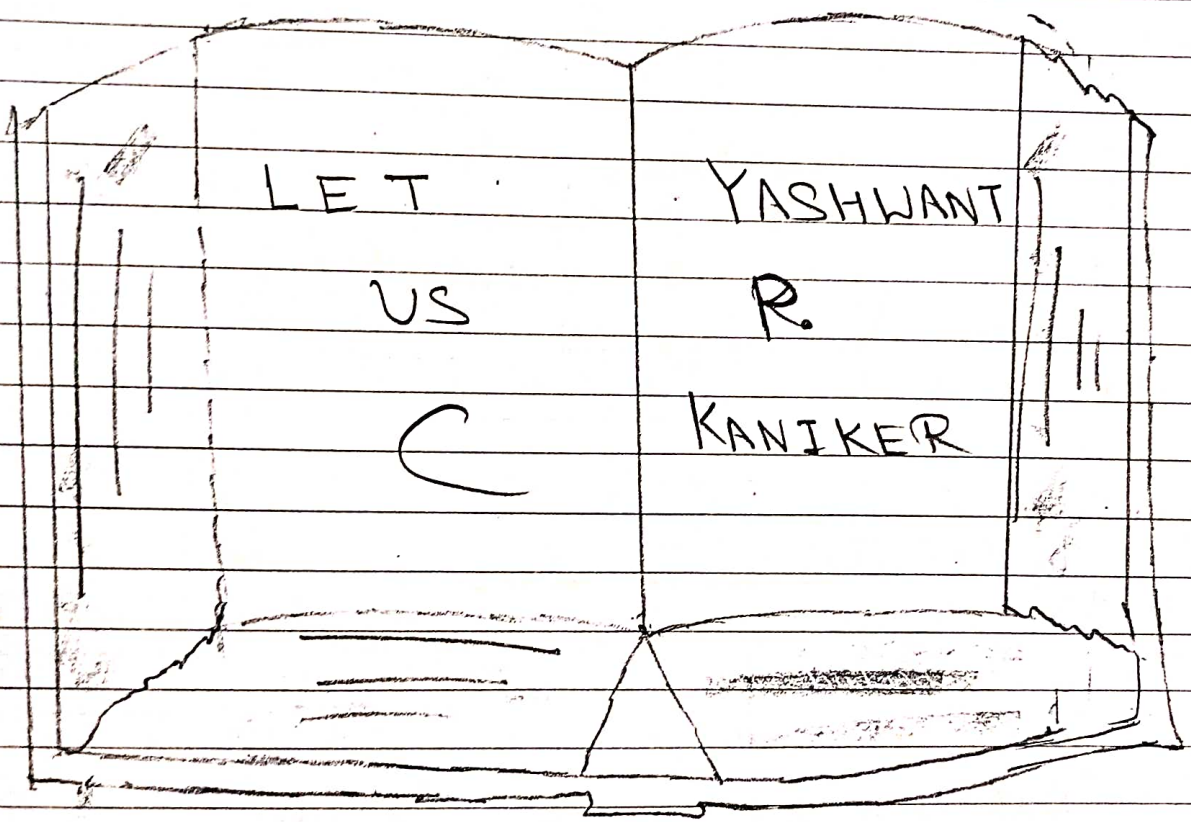 LET
US
C
YASHWANT
R.
KANIKER